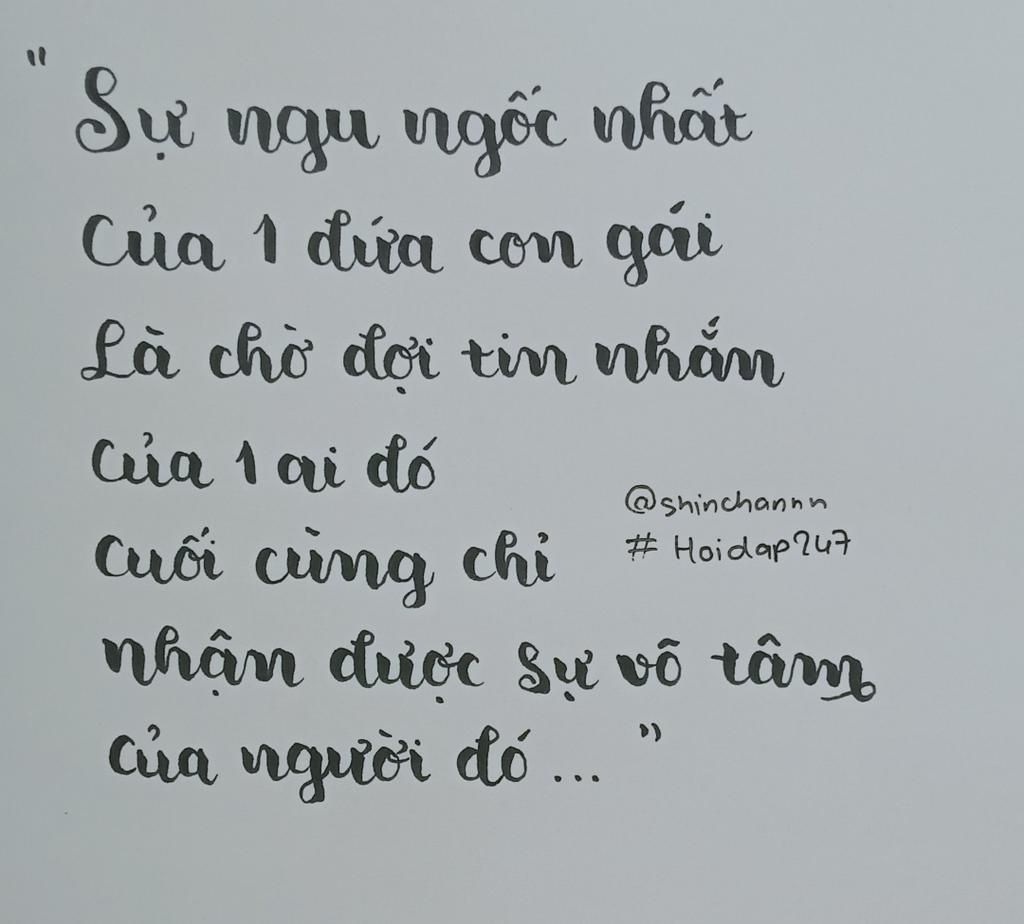 "Sự ngu ngốc nhất
Của 1 đứa con gái
Là chờ đợi tin nhắn
của 1 ai đó
cuối cùng chỉ
nhận được sự vô tâm
của người đó ..."
@shinchannn
# Hoidap247